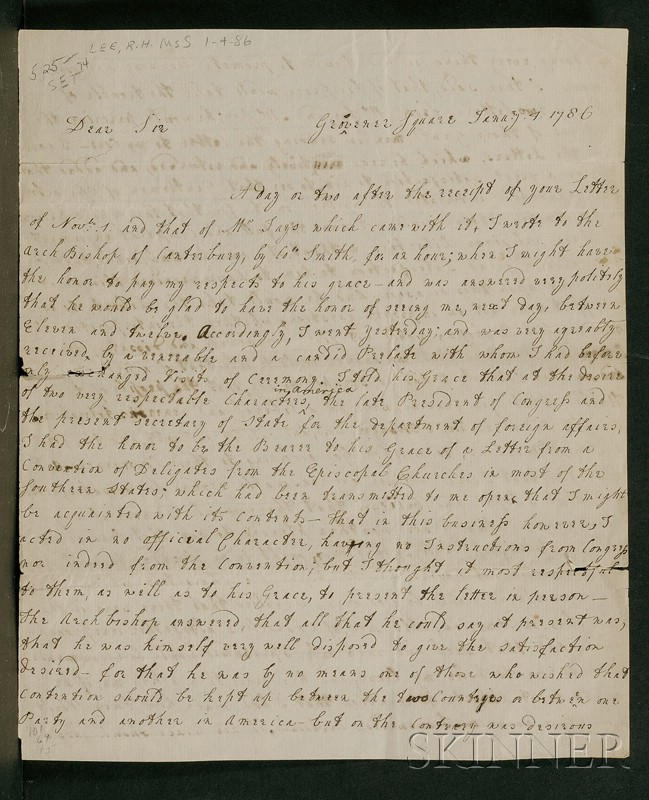 LEE, R.H. MSS 1-4-86
Dear Sir
Grovener Square Janay 4 1786
A day or two after the receipt of your Letter
of Novbr 1. and that of Mr Jays which came with it, I wrote to the
Arch Bishop of Canterbury, by Coll Smith for an hour; when I might have
the honor to pay my respects to his grace – and was answered very politely
that he would be glad to have the honor of seeing me, next day, between
Eleven and twelve. Accordingly, I went yesterday; and was very agreably
received, by a venerable and a candid Perlate with whom I had before
only exchanged Visits of Ceremony. I told his Grace that at the desire
in America
of two very respectable Characters, the late President of Congress and
the present secretary of State for the department of foreign affairs,
I had the honor to be the Bearer to his Grace of a Letter from a
Convention of Deligates from the Episcopal Churches in most of the
Southern States; which had been transmitted to me open, that I might
be acquainted with its Contents – that in this business however, I
acted in no official Character, having no Instructions from Congress
nor indeed from the Convention; but I thought it most respectful
to them, as well as to his Grace, to present the letter in person –
The Archbishop answered, that all that he could say at present was,
that he was himself very well disposed to give the satisfaction
desired – for that he was by no means one of those who wished that
Contention should be kept up between the two Countryes or between one
Party and another in America – but on the Contrery was desirous
SKINNER